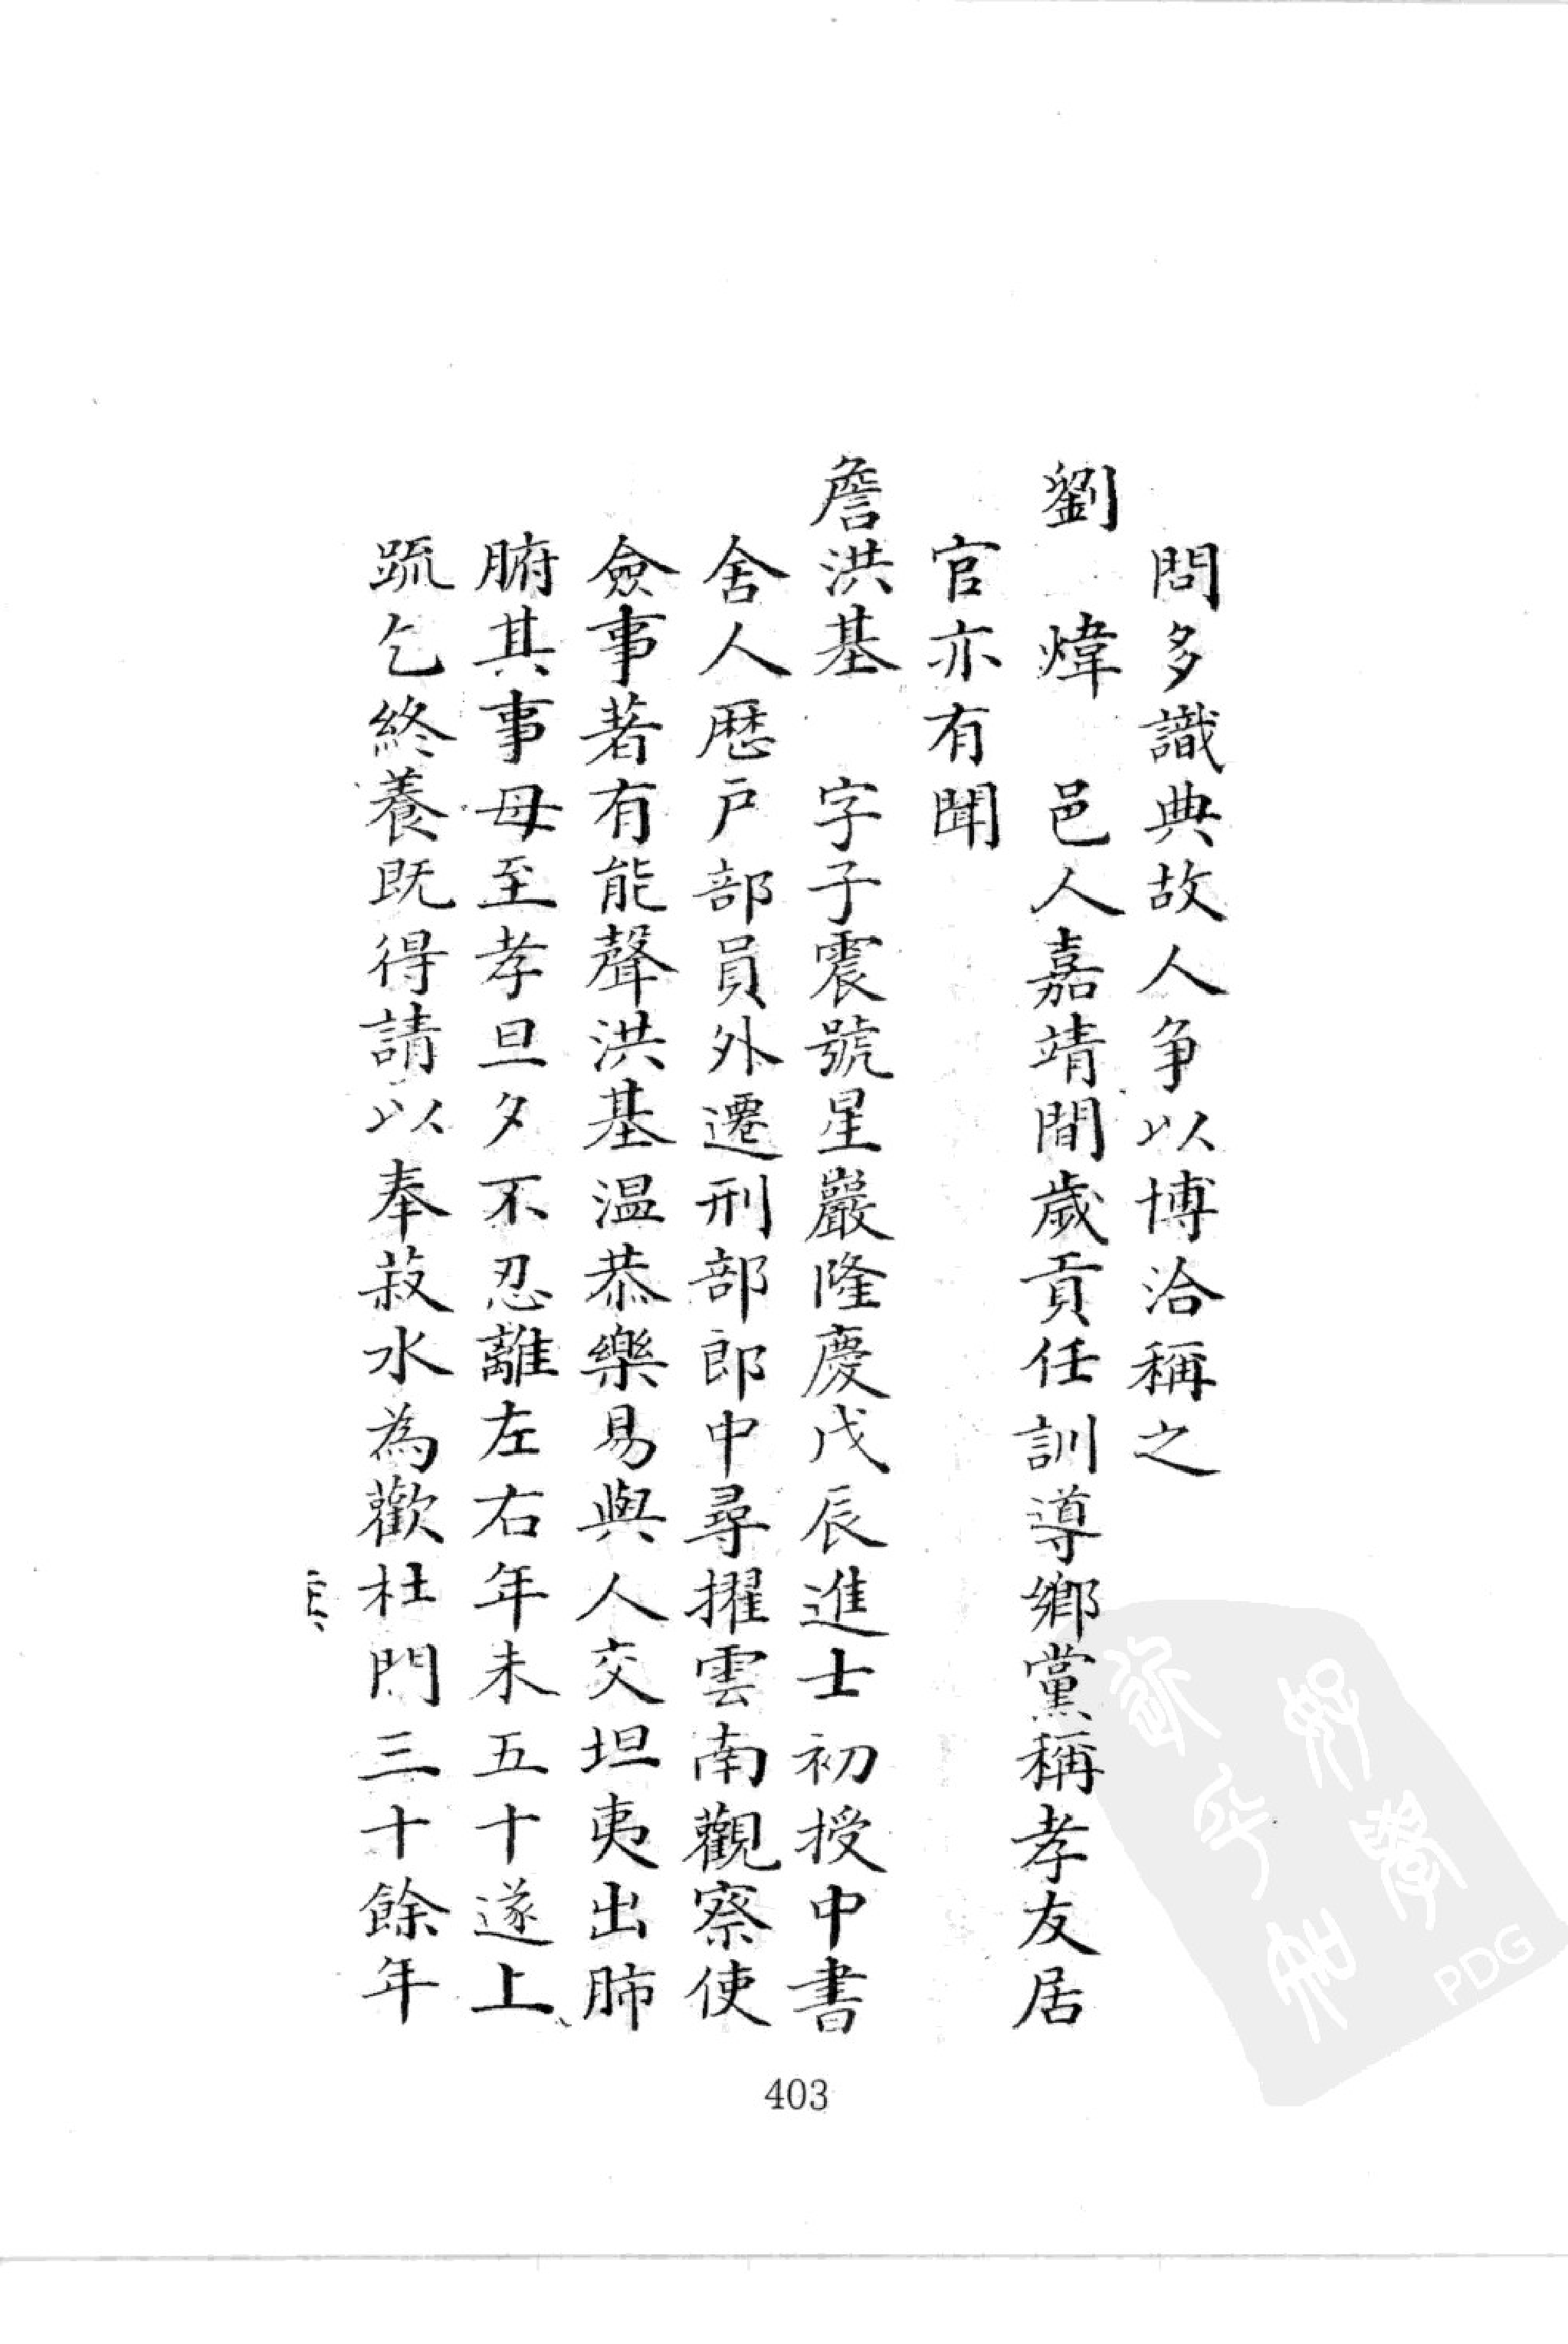 問多識典故人争以博洽稱之
劉 煒 邑人嘉靖間歲貢任訓導鄉黨稱孝友居
官亦有聞
詹洪基 字子震號星巖隆慶戊辰進士初授中書
舍人歷戶部員外遷刑部郎中尋擢雲南觀察使
僉事著有能聲洪基温恭樂易與人交坦夷出肺
腑其事母至孝旦夕不忍離左右年未五十遂上
疏乞終養既得請以奉菽水為歡杜門三十餘年
403
PDG